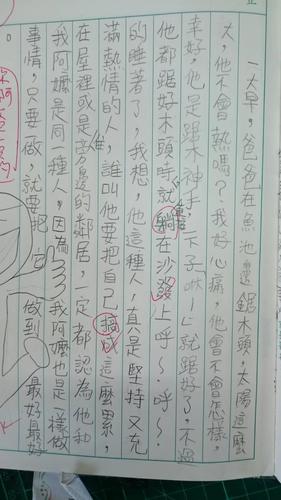 一大早，爸爸在魚池邊鋸木頭，太陽這麼
大，他不會熱嗎？我好心痛，他會不會怎樣，
幸好，他是鋸木神手，一下子「咻」就鋸好了，不過
他都鋸好木頭時，就會躺在沙發上呼～呼～
的睡著了，我想，他這種人，真是堅持又充
滿熱情的人，誰叫他要把自己搞成這麼累，
在屋裡或是旁邊的鄰居，一定都認為他和
我阿嬤是同一種人，因為我阿嬤也是一樣做
事情，只要做，就要把它做到最好最好
。